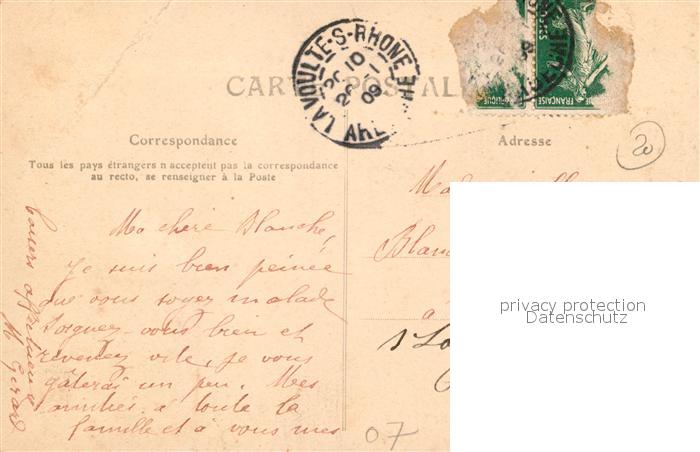 LA VOULTE-S-RHONE
20 10
09
CARTE POSTALE
FRANÇAISE
Correspondance
Adresse
20
Tous les pays étrangers n'acceptent pas la correspondance
au recto, se renseigner à la Poste
Ma chère Blanche,
Je suis bien peinée
que vous soyez malade
Soignez-vous bien et
revenez vite, je vous
gâterai un peu. Mes
amitiés à toute la
famille et à vous mes
baisers affectueux
M Gérard
Blan
à
07
privacy protection
Datenschutz